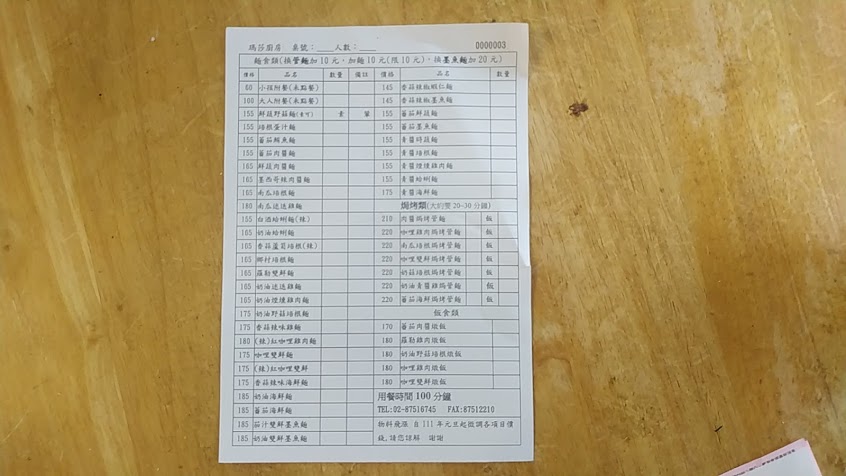 瑪莎廚房 桌號：____人數：____ 0000003
麵食類(換管麵加10元,加麵10元(限10元),換墨魚麵加20元)
價格 品名 數量 備註 價格 品名 數量
60 小孩附餐(未點餐) 145 香蒜辣椒蝦仁麵
100 大人附餐(未點餐) 145 香蒜辣椒墨魚麵
155 鮮蔬野菇麵(素可) 素 葷 155 蕃茄鮮蔬麵
155 培根蛋汁麵 155 蕃茄墨魚麵
155 蕃茄鮪魚麵 155 青醬時蔬麵
155 蕃茄肉醬麵 155 青醬培根麵
165 鮮蔬肉醬麵 155 青醬煙燻雞肉麵
165 墨西哥辣肉醬麵 155 青醬蛤蜊麵
165 南瓜培根麵 175 青醬海鮮麵
180 南瓜迷迭雞麵 焗烤類(大約要20~30分鐘)
155 白酒蛤蜊麵(辣) 210 肉醬焗烤管麵 飯
165 奶油蛤蜊麵 220 咖哩雞肉焗烤管麵 飯
165 香蒜蘆筍培根(辣) 220 南瓜培根焗烤管麵 飯
165 鄉村培根麵 220 咖哩雙鮮焗烤管麵 飯
165 羅勒雙鮮麵 220 奶菇培根焗烤管麵 飯
165 奶油迷迭雞麵 220 奶油青醬雞焗烤管麵 飯
165 奶油煙燻雞肉麵 220 蕃茄海鮮焗烤管麵 飯
175 奶油野菇培根麵 飯食類
175 香蒜辣味雞麵 170 蕃茄肉醬燉飯
180 (辣)紅咖哩雞肉麵 180 羅勒雞肉燉飯
175 咖哩雙鮮麵 180 奶油野菇培根燉飯
175 (辣)紅咖哩雙鮮 180 咖哩雞肉燉飯
175 香蒜辣味海鮮麵 180 咖哩雙鮮燉飯
185 奶油海鮮麵 用餐時間100分鐘
185 蕃茄海鮮麵 TEL:02-87516745 FAX:87512210
185 茄汁雙鮮墨魚麵 物料飛漲 自111年元旦起微調各項目價
185 奶油雙鮮墨魚麵 錢,請您諒解 謝謝